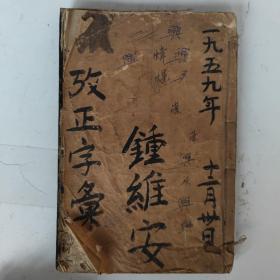 一九五九年
十二月卅日
鍾維安
攷正字彙